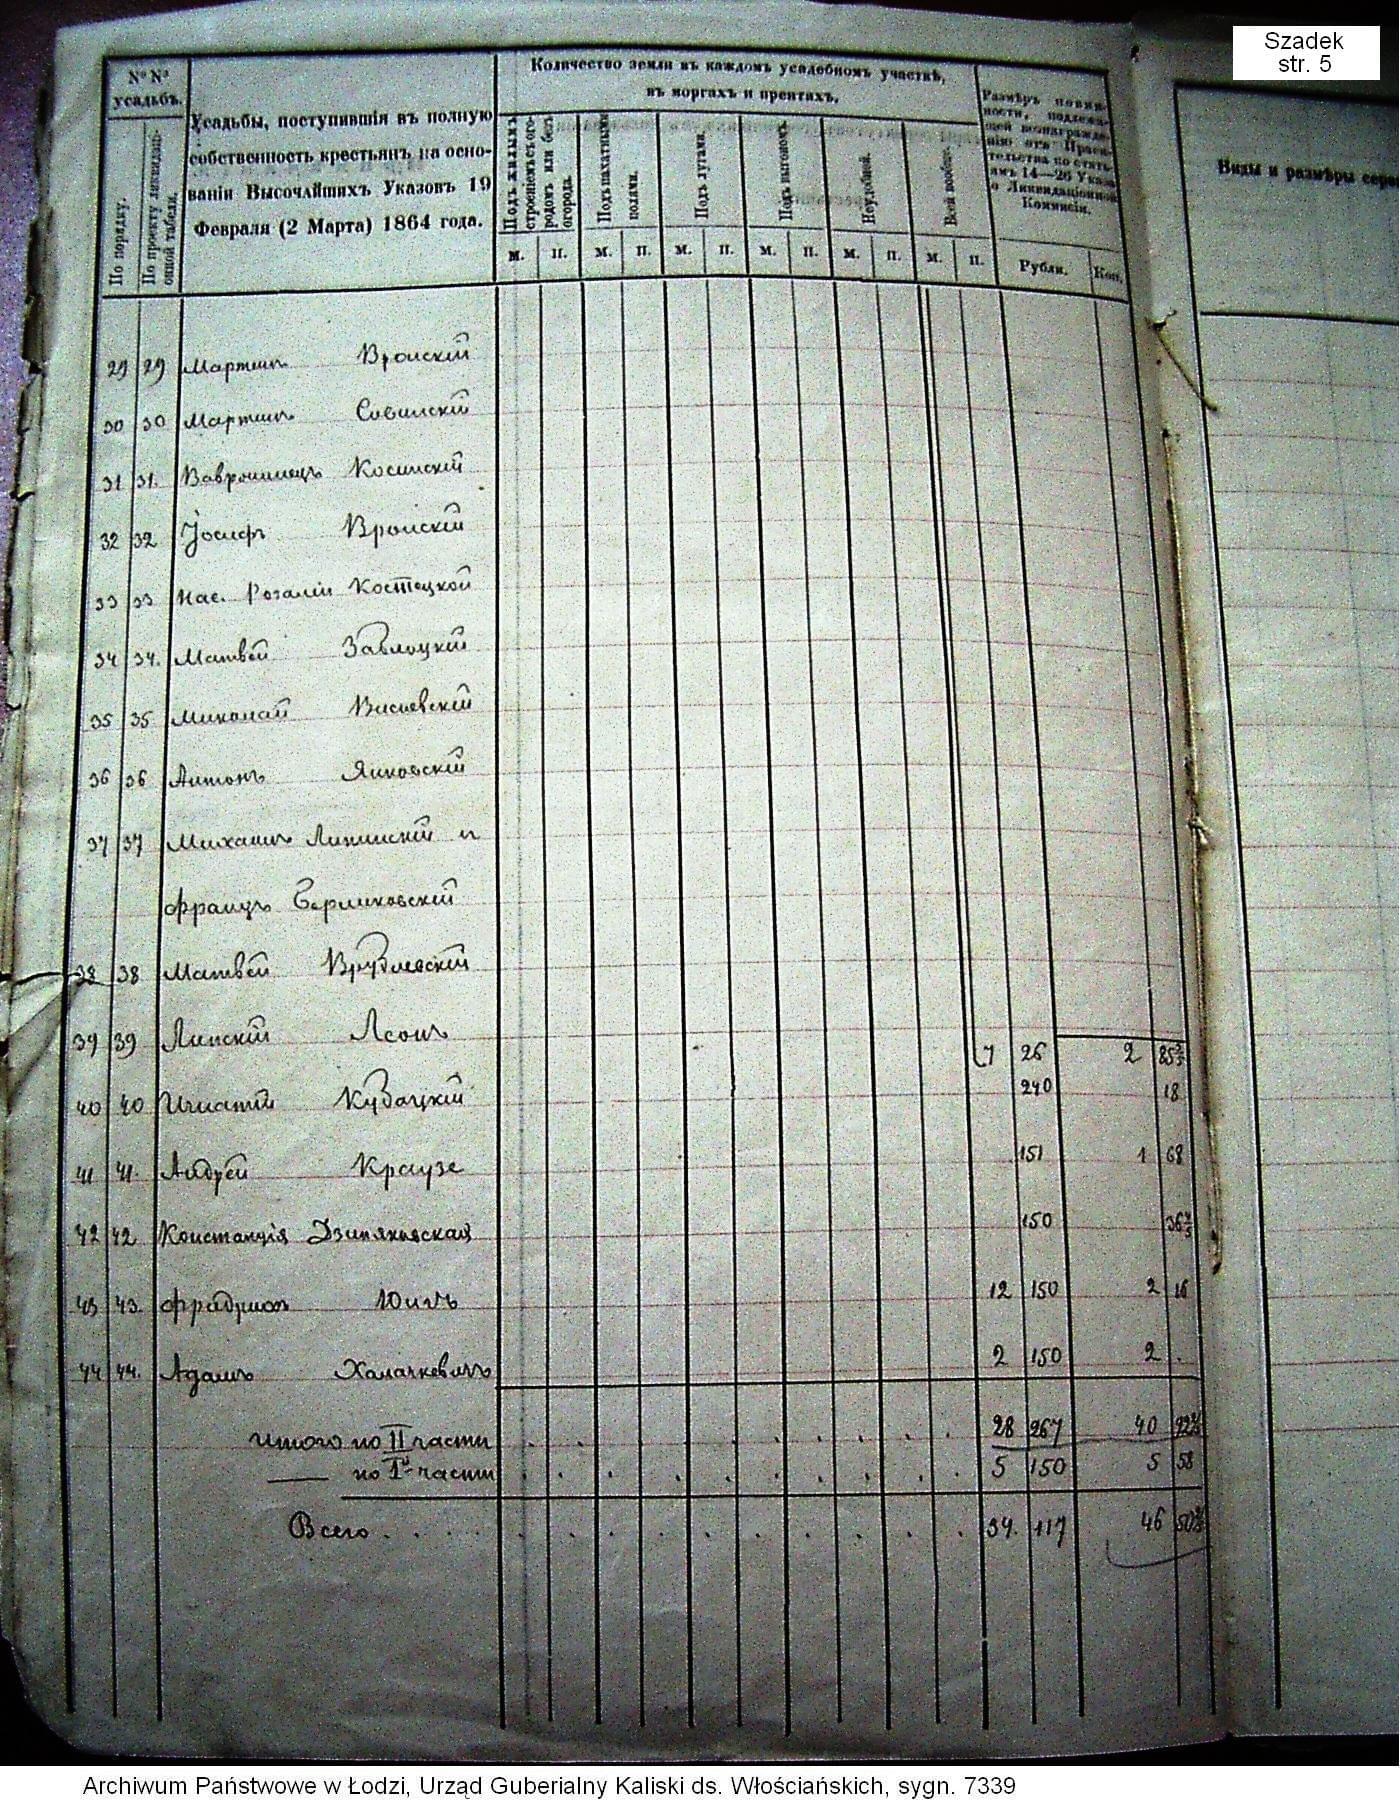 Szadek
str. 5
№ №
усадьбъ.
По порядку.
По проекту ликвидаціонной табели.
Усадьбы, поступившія въ полную
собственность крестьянъ на осно-
ваніи Высочайшихъ Указовъ 19
Февраля (2 Марта) 1864 года.
Количество земли въ каждомъ усадебномъ участкѣ,
въ моргахъ и прентахъ.
Подъ жилымъ
строеніемъ съ ого-
родомъ или безъ
огорода.
Подъ пахатными
полями.
Подъ лугами.
Подъ выгономъ.
Неудобной.
Всей вообще.
Размѣръ повин-
ности, подлежа-
щей вознагражде-
нію отъ Прави-
тельства по стать-
ямъ 14—26 Указа
о Ликвидаціонной
Комисіи.
м. п. м. п. м. п. м. п. м. п. м. п. Рубли. Коп.
Виды и размѣры серв
29 29 Мартинъ Вронскій
30 30 Мартинъ Совинскій
31 31. Вавронинецъ Косинскій
32 32 Іосифъ Вронскій
33 33 Нас. Розаліи Костецкой
34 34. Матвѣй Заблоцкій
35 35 Миколай Висневскій
36 36 Антонъ Янковскій
37 37 Михаилъ Липинскій и
Францъ Серниковскій
38 38 Матвѣй Врублевскій
39 39 Липскій Леонъ 7 26 2 85
40 40 Игнатій Кубацкій 240 18
41 41. Андрей Краузе 151 1 68
42 42 Констанція 150 36
43 43. Юнгъ 12 150 2 16
44 44. Адамъ 2 150 2 .
Итого по II части 28 267 40 92
— по I й части 5 150 5 58
Всего 34. 117 46 50
Archiwum Państwowe w Łodzi, Urząd Guberialny Kaliski ds. Włościańskich, sygn. 7339